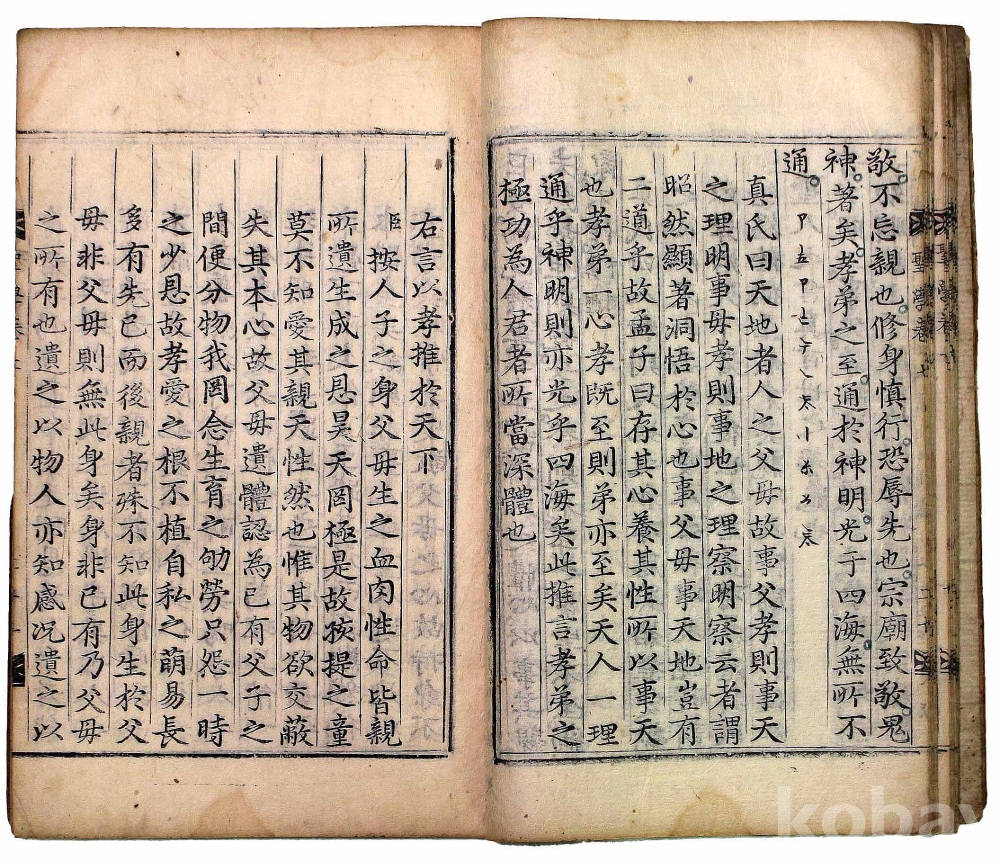 敬。不忘親也。修身慎行。恐辱先也。宗廟致敬。鬼
神。著矣。孝弟之至。通於神明。光于四海。無所不
通。
真氏曰天地者人之父母故事父孝則事天
之理明事母孝則事地之理察明察云者謂
昭然顯著洞悟於心也事父母事天地豈有
二道乎故孟子曰存其心養其性所以事天
也孝弟一心孝既至則弟亦至矣天人一理
通乎神明則亦光乎四海矣此推言孝弟之
極功為人君者所當深體也
右言以孝推於天下
臣按人子之身父母生之血肉性命皆親
所遺生成之恩昊天罔極是故孩提之童
莫不知愛其親天性然也惟其物欲交蔽
失其本心故父母遺體認為已有父子之
間便分物我罔念生育之劬勞只怨一時
之少恩故孝愛之根不植自私之萌易長
多有先已而後親者殊不知此身生於父
母非父母則無此身矣身非已有乃父母
之所有也遺之以物人亦知感况遺之以
kobay